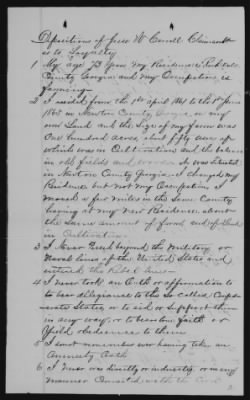 Depositions of Jesse W Carroll Claimant
as to Loyalty
1 My age 73 years My Residence is Rockdale
County Georgia and My Occupation is
farming
2 I resided from the 1st April 1861 to the 1st June
1865 in Newton County Georgia on my
own Land and the size of my farm was
One hundred acres about fifty acres of
which was in Cultivation and the balance
in old fields and woods It was situated
in Newton County Georgia I changed my
Residence but not my Occupation I
moved a few miles in the Same County
having at my New Residence about
the Same amount of farm and Land
in Cultivation
3 I Never Passed beyond the Military or
Naval lines of the United States and
entered the Rebel lines
4 I never took an Oath or affirmation to
to bear allegiance to the So called Confed
erate States or to aid or Support them
in any way, or to bear true faith or
yield obedience to them
5 I dont remember ever having taken an
Amnesty Oath
6 I Never was directly or indirectly or in any
manner Connected with the